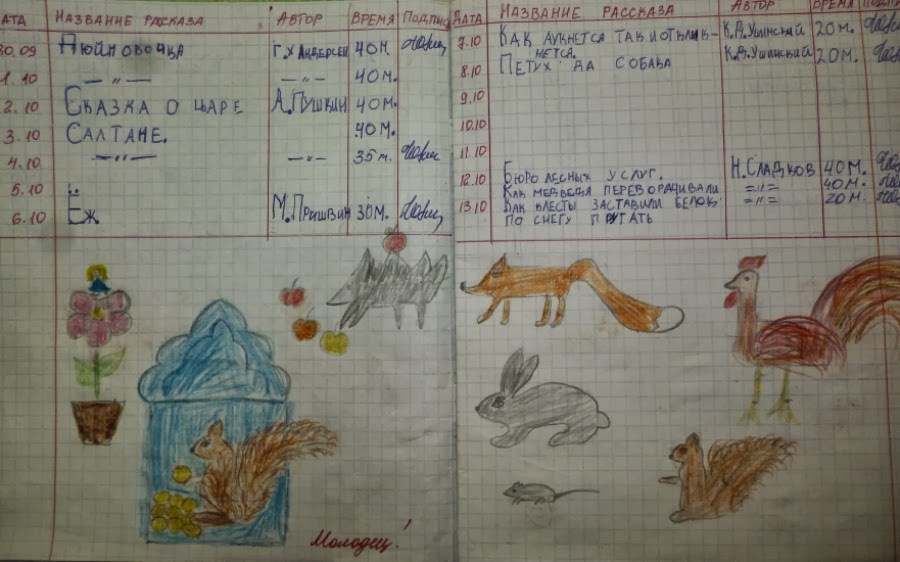 ДАТА НАЗВАНИЕ РАССКАЗА АВТОР ВРЕМЯ ПОДПИСЬ
30.09 Дюймовочка Г.Х Андерсен 40 м.
1.10 —〃— —〃— 40 м.
2.10 Сказка о царе А.Пушкин 40 м.
3.10 Салтане. 40 м.
4.10 —〃— —〃— 35 м.
5.10
6.10 Ёж М.Пришвин 30 м.
Молодец!
ДАТА НАЗВАНИЕ РАССКАЗА АВТОР ВРЕМЯ
7.10 Как аукнется так и отклик- К.Д.Ушинский 20 м.
нется.
8.10 Петух да собака К.Д.Ушинский 20 м.
9.10
10.10
11.10
12.10 Бюро лесных услуг. Н.Сладков 40 м.
Как медведя переворачивали =〃= 40 м.
13.10 Как клесты заставили белок =〃= 20 м.
по снегу прыгать